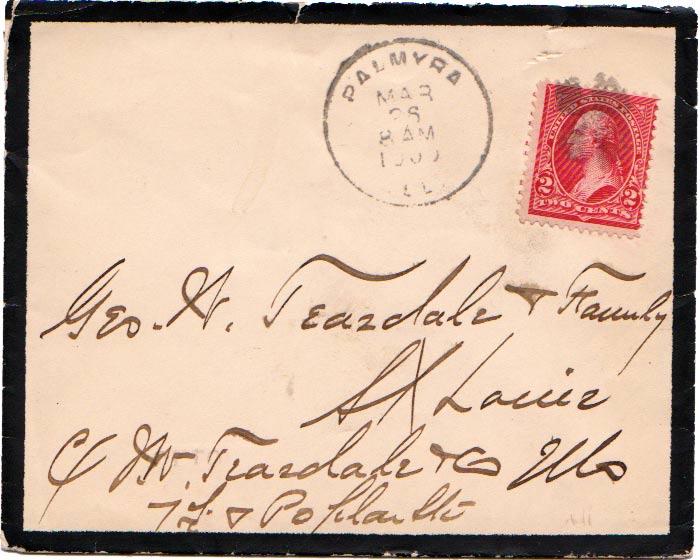 PALMYRA
MAR
26
8 AM
1900
ILL.
UNITED STATES POSTAGE
2 TWO CENTS 2
Geo. W. Teasdale & Family
St Louis
c/o Teasdale & Co Mo
7th & Poplar Sts